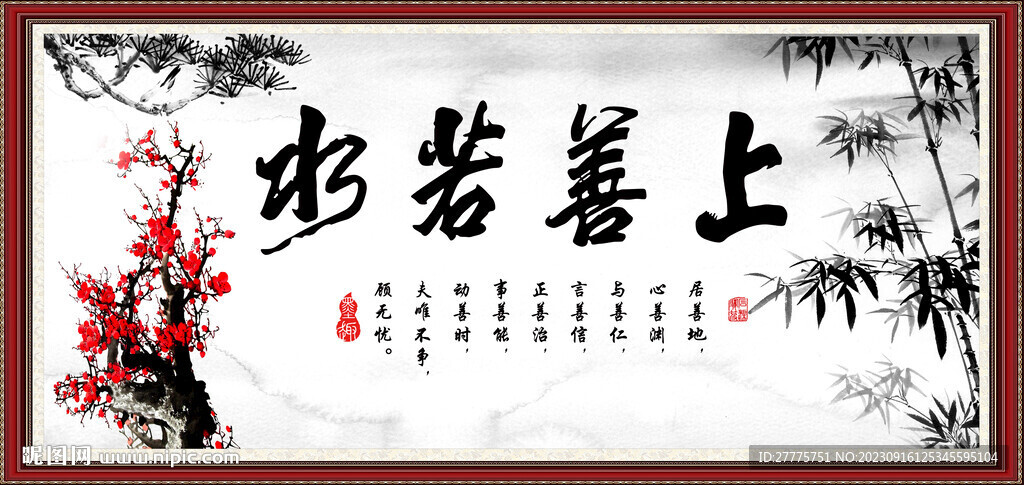 上善若水
居善地，
心善渊，
与善仁，
言善信，
正善治，
事善能，
动善时，
夫唯不争，
顾无忧。
墨趣
昵图网 www.nipic.com
ID:27775751 NO:20230916125345595104